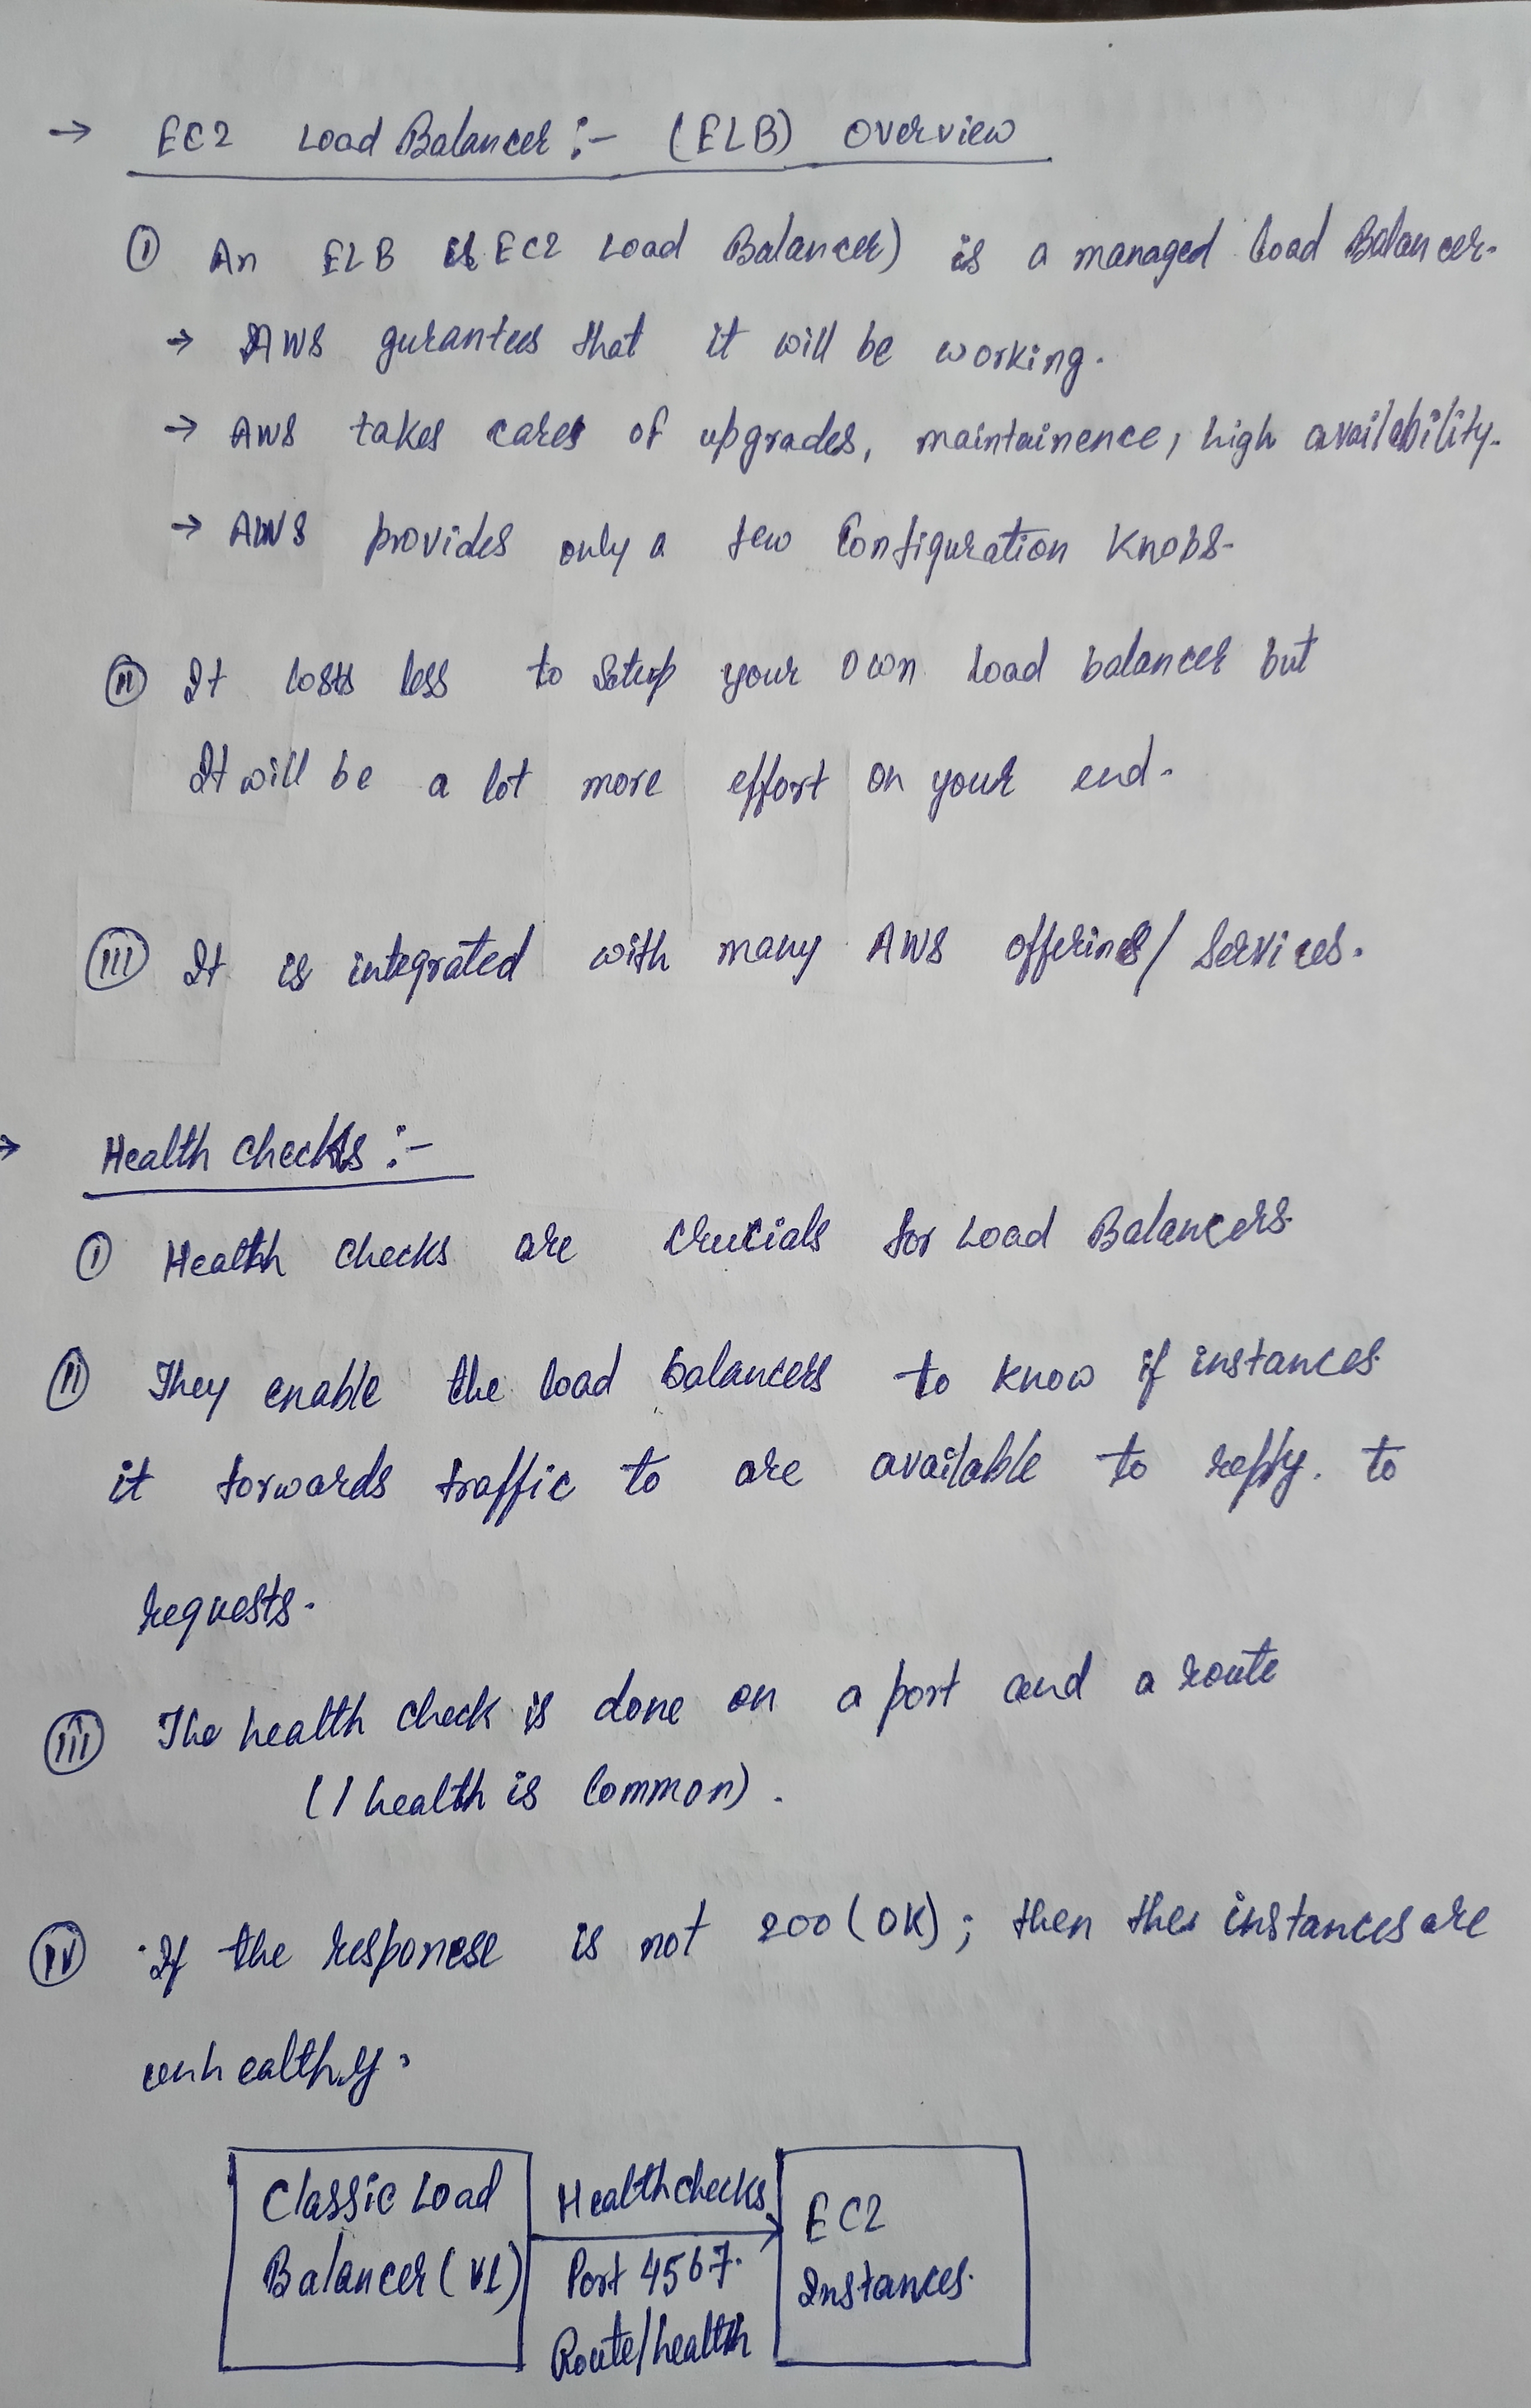 → EC2 Load Balancer :- (ELB) Overview
(i) An ELB is EC2 Load Balancer) is a managed load Balancer.
→ AWS gurantees that it will be working.
→ AWS takes cares of upgrades, maintainence, high availability.
→ AWS provides only a few Configuration Knobs.
(ii) It costs less to setup your own load balancer but
It will be a lot more effort on your end.
(iii) It is integrated with many AWS offerines/ Services.
→ Health checks :-
(i) Health checks are crucials for Load Balancers.
(ii) They enable the load balancers to know if instances
it forwards traffic to are available to reply. to
requests.
(iii) The health check is done on a port and a route
(/ health is Common).
(iv) If the responese is not 200 (OK); then the instances are
unhealthy.
Classic Load
Balancer (V1)
Health checks
Port 4567.
Route/health
EC2
Instances.